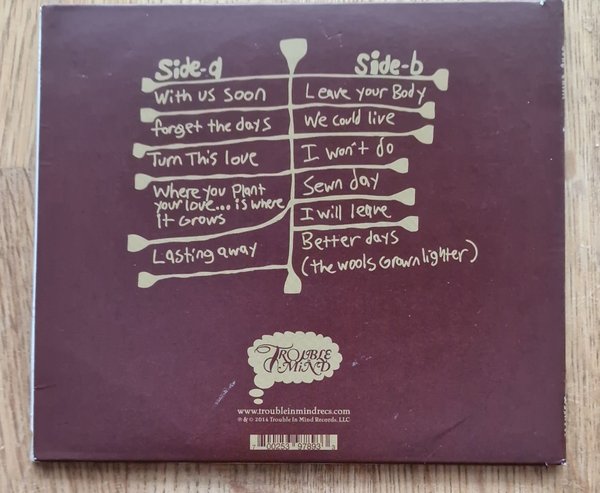 Side-a
With us soon
forget the days
Turn This love
Where you Plant
your love... is where
it Grows
Lasting away
Side-b
Leave your Body
We could live
I won't do
Sewn day
I will leave
Better days
(the wools Grown lighter)
TROUBLE
MIND
www.troubleinmindrecs.com
℗ & © 2014 Trouble In Mind Records, LLC
7 00253 97893 3